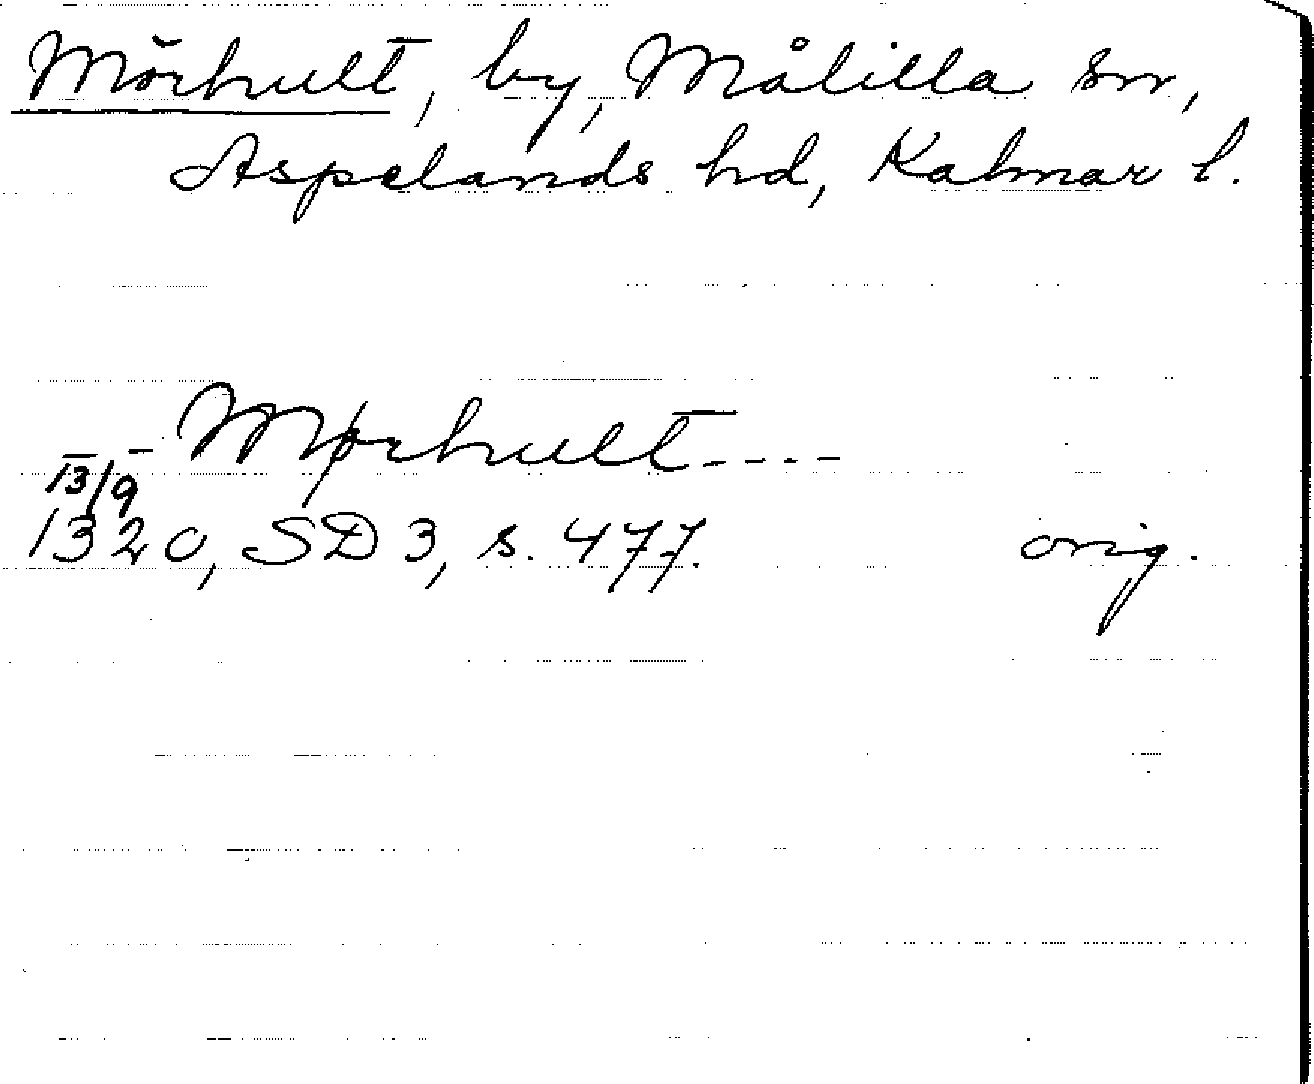 Mörhult, by, Målilla sn,
Aspelands hd, Kalmar l.
Mørhult - - - -
13/9
1320, SD 3, s. 477. orig.